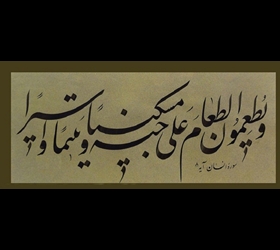 ويطعمون الطعام على حبه مسكينا ويتيما واسيرا
سورة انسان آية ٨